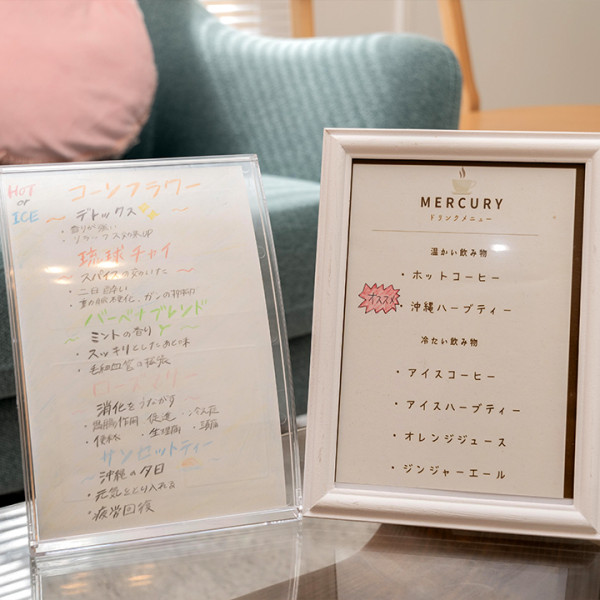 HOT
or
ICE
コーンフラワー
～ デトックス ～
・香りが無い
・リラックス効果UP
琉球チャイ
～ スパイスの効いた ～
・二日酔い
・動脈硬化、ガンの抑制
バーベナブレンド
～ ミントの香り ～
・スッキリとしたあと味
・毛細血管の拡張
ローズマリー
～ 消化をうながす ～
・便秘 ・生理痛 ・頭痛
サンセットティー
～ 沖縄の夕日 ～
・元気をとり入れる
・疲労回復
MERCURY
ドリンクメニュー
温かい飲み物
・ホットコーヒー
オススメ
・沖縄ハーブティー
冷たい飲み物
・アイスコーヒー
・アイスハーブティー
・オレンジジュース
・ジンジャーエール